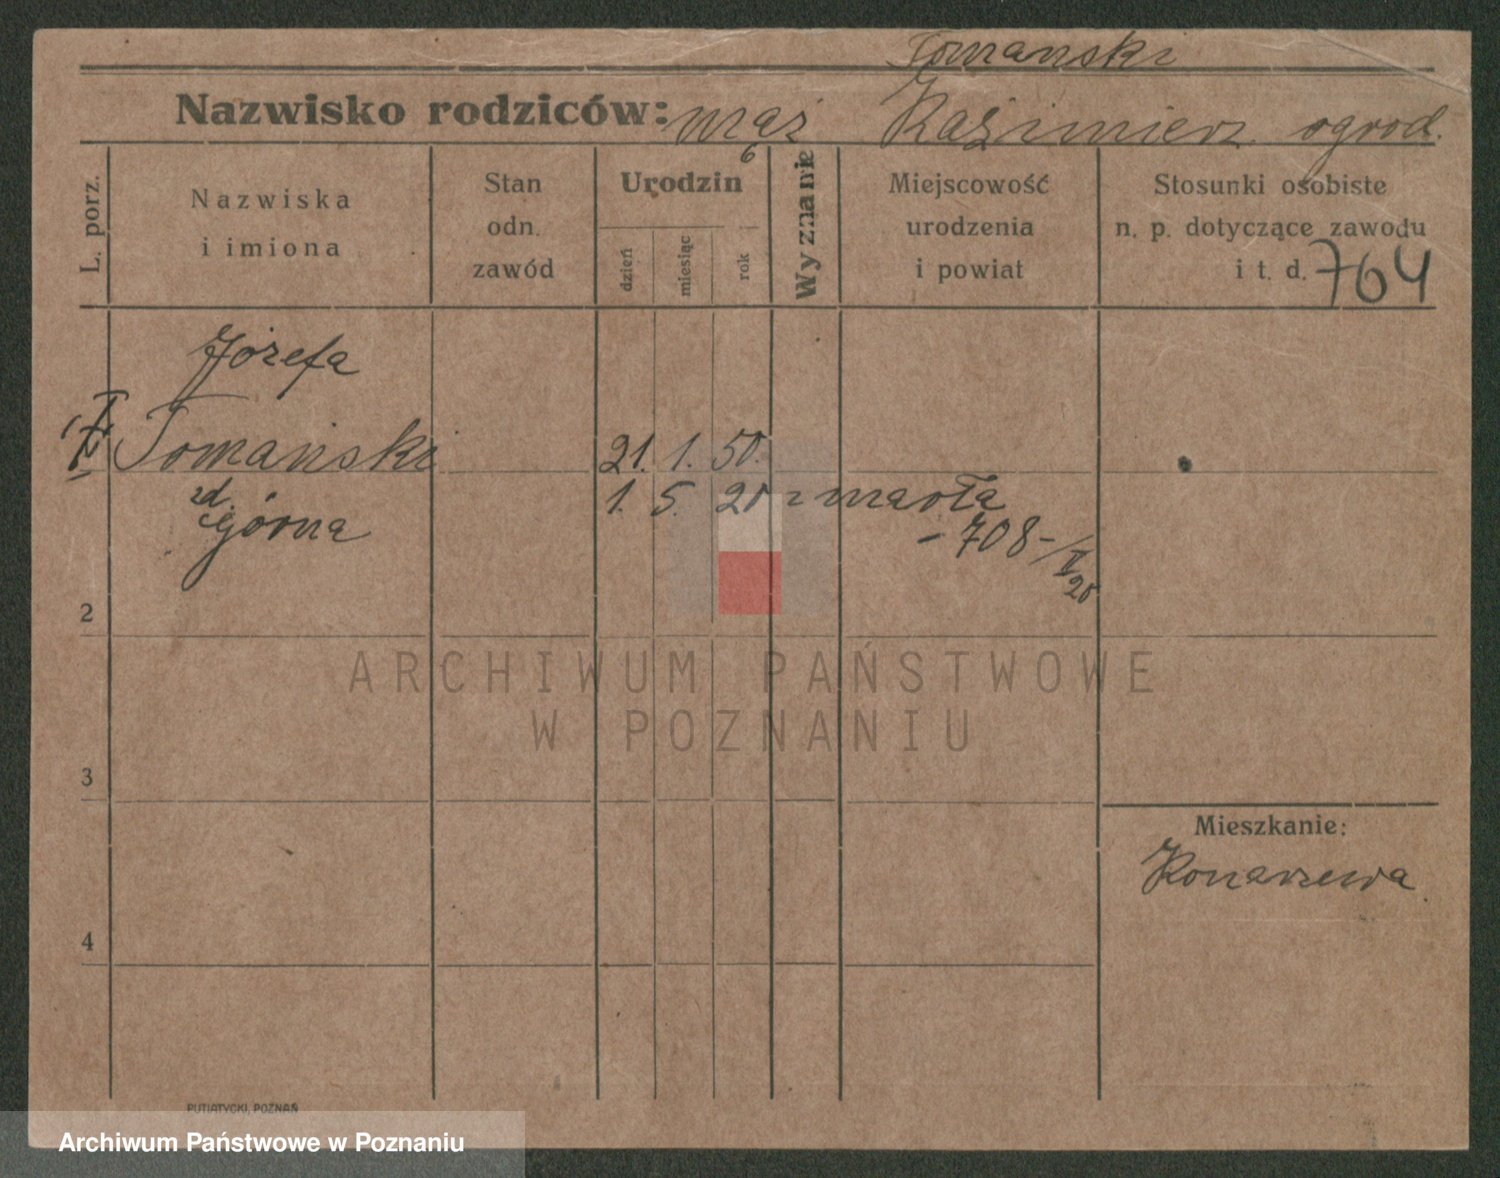 Tomanski
Nazwisko rodziców: mąż Kazimierz ogrod.
L. porz.
Nazwiska
i imiona
Stan
odn.
zawód
Urodzin
dzień
miesiąc
rok
Wyznanie
Miejscowość
urodzenia
i powiat
Stosunki osobiste
n. p. dotyczące zawodu
i t. d. 764
Józefa
Tomański 21. 1. 50.
zd. 1. 5. 20 zmarła
Górna - 708 - / II 20
2
3
4
Mieszkanie:
Konarzewa
PUTIATYCKI, POZNAŃ
ARCHIWUM PAŃSTWOWE
W POZNANIU
Archiwum Państwowe w Poznaniu